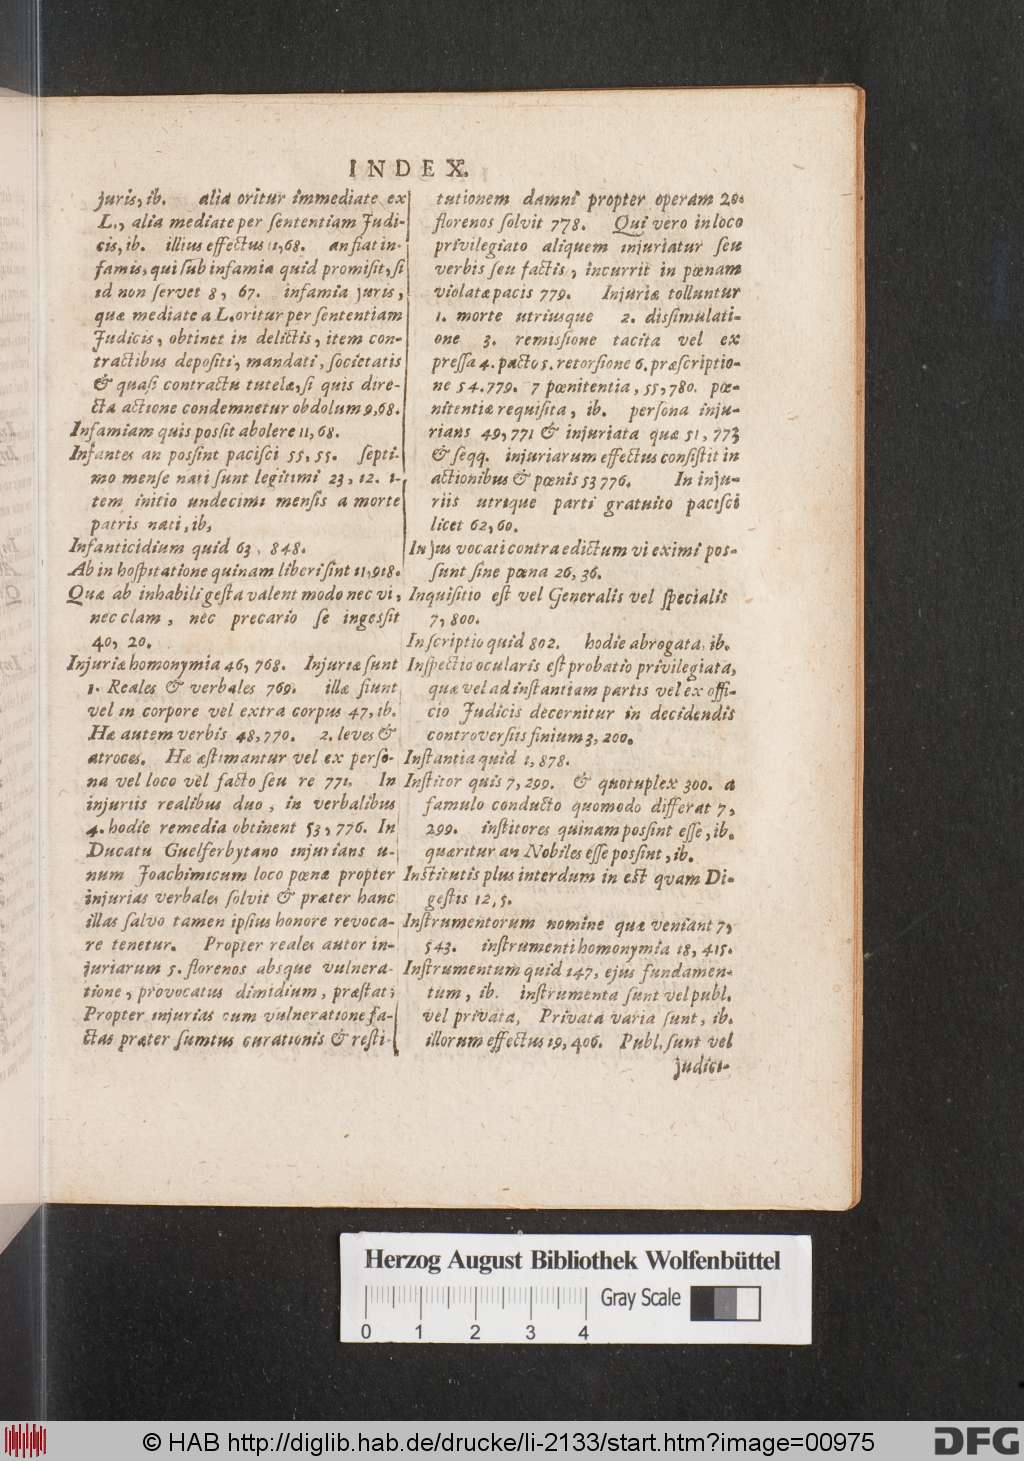 INDEX.
juris, ib. alia oritur immediate ex
L., alia mediate per sententiam Judi-
cis, ib. illius effectus 1, 68. an fiat in-
famis, qui sub infamia quid promisit, si
id non servet 8, 67. infamia juris,
quæ mediate a L. oritur per sententiam
Judicis, obtinet in delictis, item con-
tractibus depositi, mandati, societatis
& quasi contractu tutelæ, si quis dire-
cta actione condemnetur ob dolum 9, 68.
Infamiam quis possit abolere 11, 68.
Infantes an possint pacisci 55, 55. septi-
mo mense nati sunt legitimi 23, 12. i-
tem initio undecimi mensis a morte
patris nati, ib,
Infanticidium quid 63, 848.
Ab inhospitatione quinam liberi sint 11, 918.
Quæ ab inhabili gesta valent modo nec vi,
nec clam, nec precario se ingessit
40, 20.
Injuriæ homonymia 46, 768. Injuriæ sunt
1. Reales & verbales 769. illæ fiunt
vel in corpore vel extra corpus 47, ib.
Hæ autem verbis 48, 770. 2. leves &
atroces. Hæ æstimantur vel ex perso-
na vel loco vel facto seu re 771. In
injuriis realibus duo, in verbalibus
4. hodie remedia obtinent 53, 776. In
Ducatu Guelferbytano injurians u-
num Joachimicum loco pœnæ propter
injurias verbales solvit & præter hanc
illas salvo tamen ipsius honore revoca-
re tenetur. Propter reales autor in-
juriarum 5. florenos absque vulnera-
tione, provocatus dimidium, præstat;
Propter injurias cum vulneratione fa-
ctas præter sumtus curationis & resti-
tutionem damni propter operam 20.
florenos solvit 778. Qui vero in loco
privilegiato aliquem injuriatur seu
verbis seu factis, incurrit in pœnam
violatæ pacis 779. Injuriæ tolluntur
1. morte utriusque 2. dissimulati-
one 3. remissione tacita vel ex
pressa 4. pacto 5. retorsione 6. præscriptio-
ne 54. 779. 7 pœnitentia, 55, 780. pœ-
nitentiæ requisita, ib. persona inju-
rians 49, 771 & injuriata quæ 51, 773
& seqq. injuriarum effectus consistit in
actionibus & pœnis 53 776. In inju-
riis utrique parti gratuito pacisci
licet 62, 60.
In jus vocati contra edictum vi eximi pos-
sunt sine pœna 26, 36.
Inquisitio est vel Generalis vel specialis
7, 800.
Inscriptio quid 802. hodie abrogata, ib.
Inspectio ocularis est probatio privilegiata,
quæ vel ad instantiam partis vel ex offi-
cio Judicis decernitur in decidendis
controversiis finium 3, 200.
Instantia quid 1, 878.
Institor quis 7, 299. & quotuplex 300. a
famulo conducto quomodo differat 7,
299. institores quinam possint esse, ib.
quæritur an Nobiles esse possint, ib.
Institutis plus interdum in est quam Di-
gestis 12, 5.
Instrumentorum nomine quæ veniant 7,
543. instrumenti homonymia 18, 415.
Instrumentum quid 147, ejus fundamen-
tum, ib. instrumenta sunt vel publ.
vel privata, Privata varia sunt, ib.
illorum effectus 19, 406. Publ. sunt vel
judici-
Herzog August Bibliothek Wolfenbüttel
0 1 2 3 4 Gray Scale
© HAB http://diglib.hab.de/drucke/li-2133/start.htm?image=00975 DFG